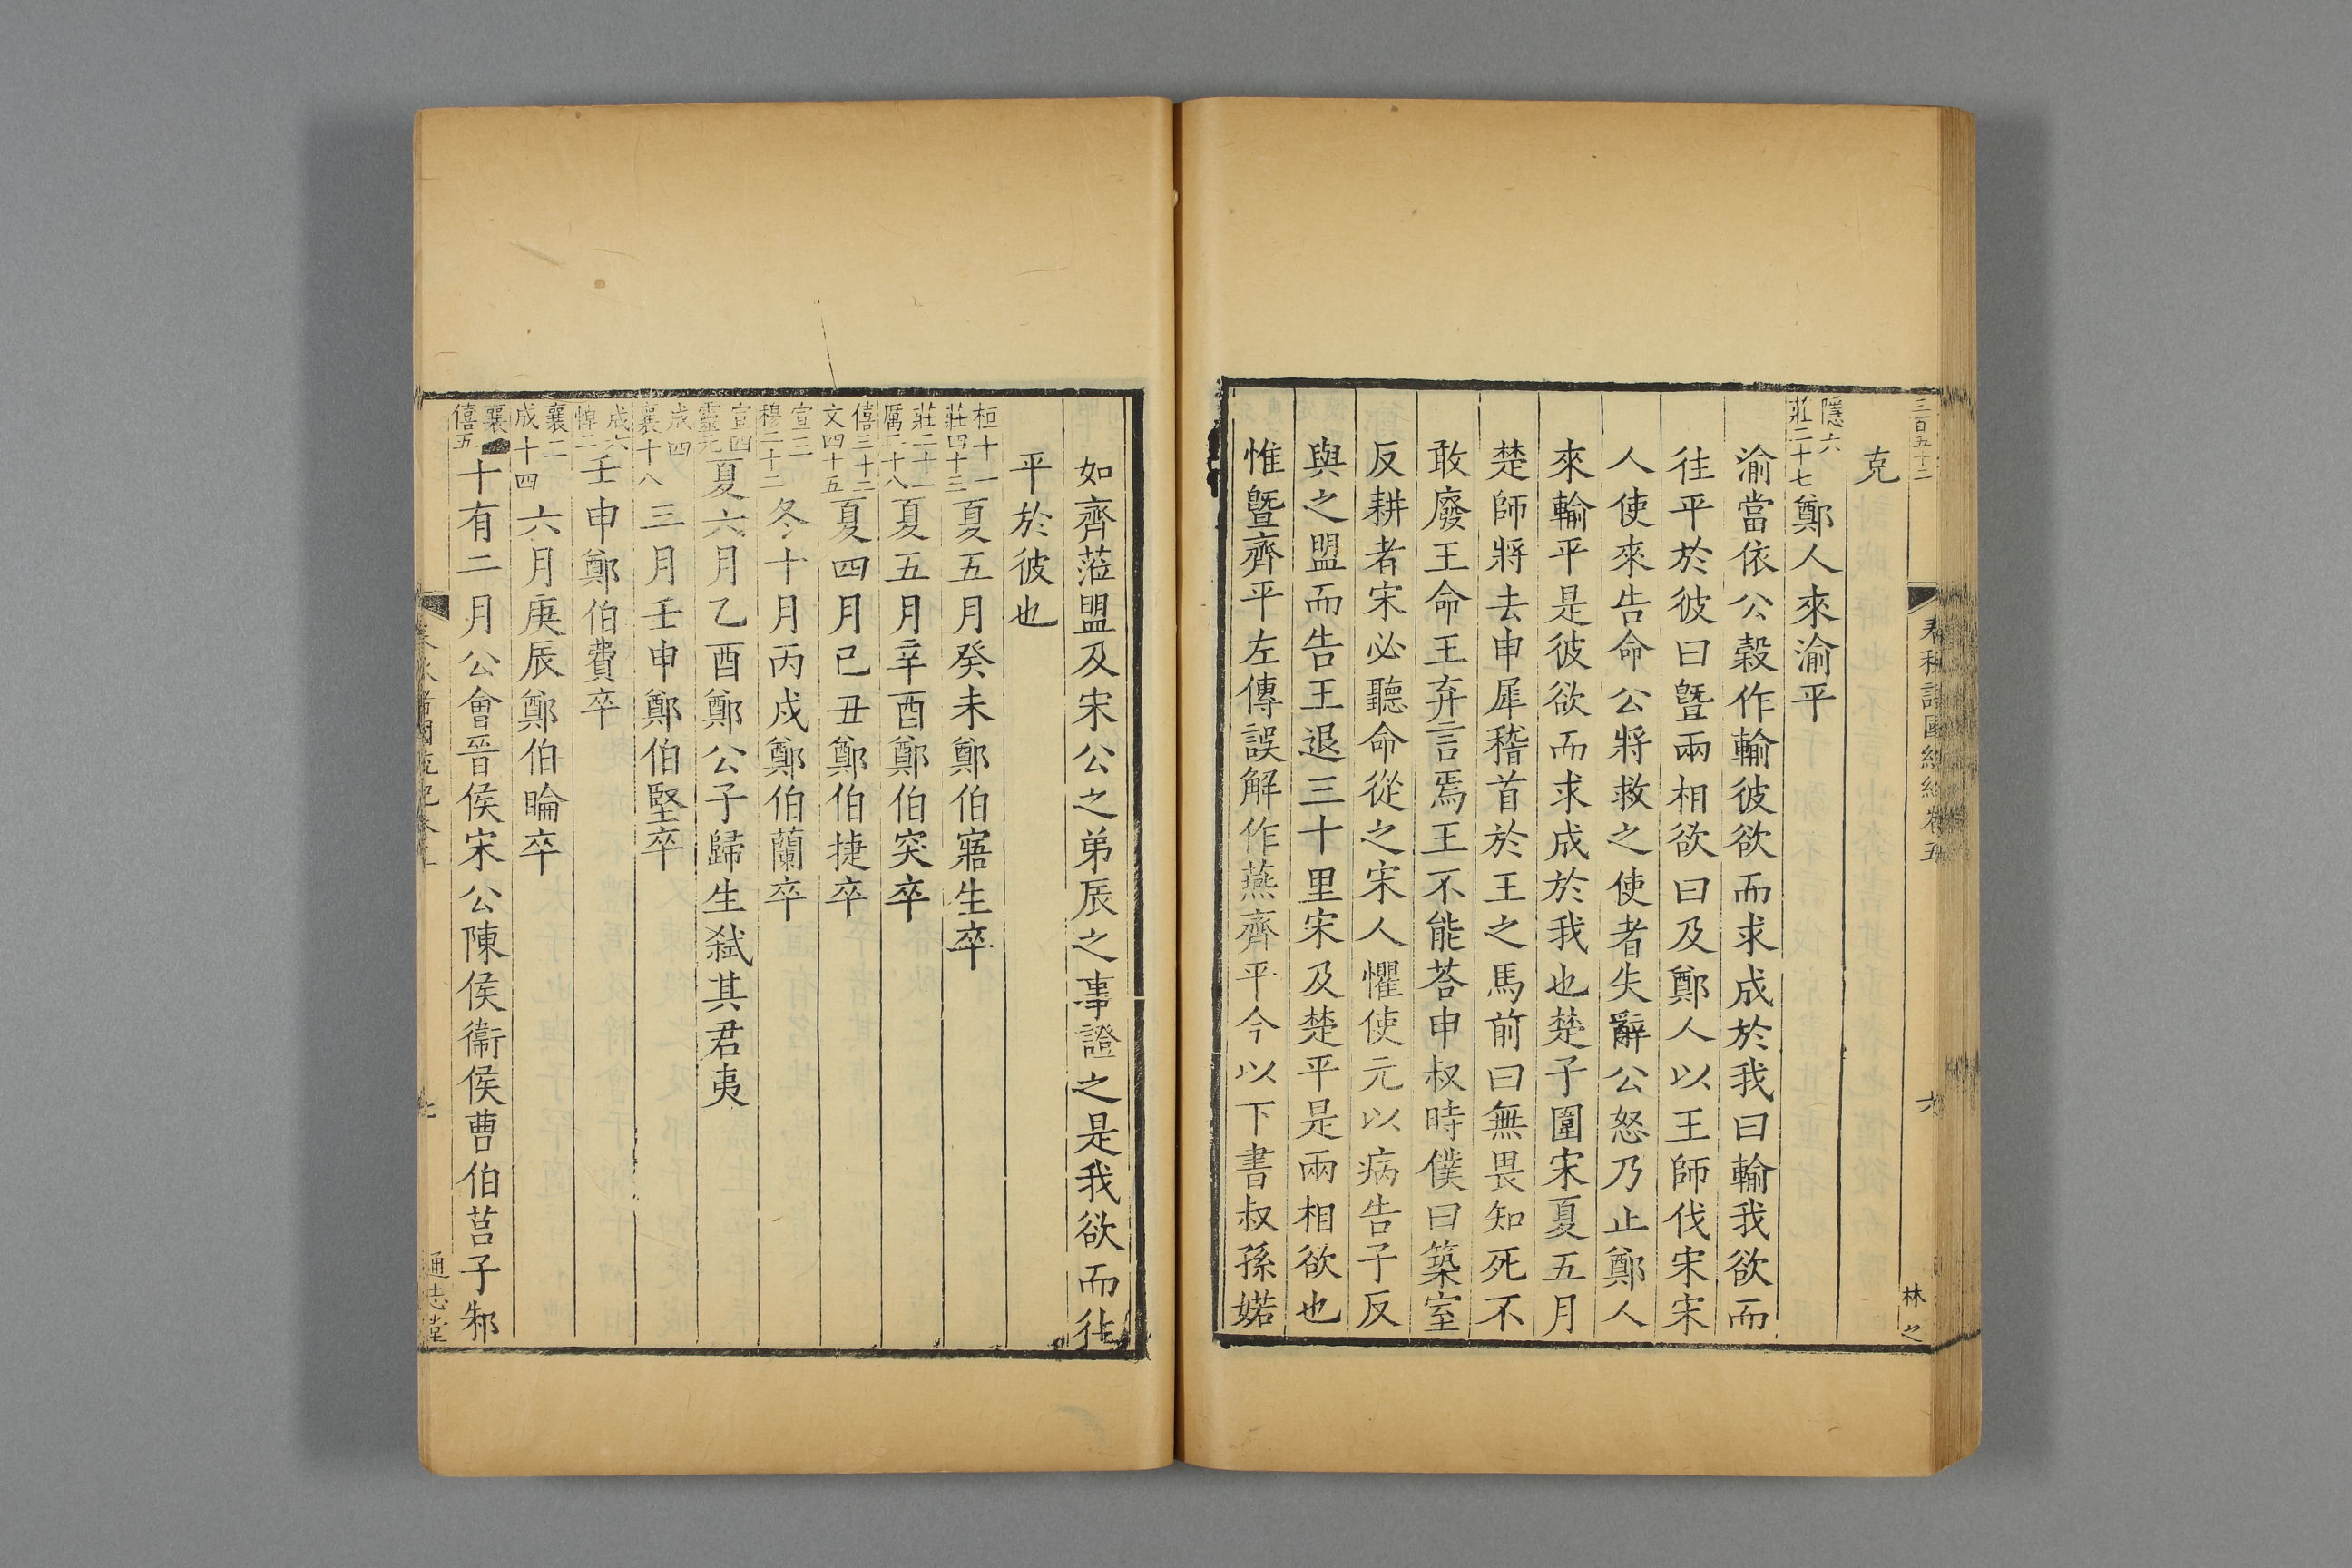 三百五十二
春秋諸國統紀卷五
六
林之
克
隱六
莊二十七
鄭人來渝平
渝當依公穀作輸彼欲而求成於我曰輸我欲而
往平於彼曰暨兩相欲曰及鄭人以王師伐宋宋
人使來告命公將救之使者失辭公怒乃止鄭人
來輸平是彼欲而求成於我也楚子圍宋夏五月
楚師將去申犀稽首於王之馬前曰無畏知死不
敢廢王命王弃言焉王不能荅申叔時僕曰築室
反耕者宋必聽命從之宋人懼使元以病告子反
與之盟而告王退三十里宋及楚平是兩相欲也
惟暨齊平左傳誤解作燕齊平今以下書叔孫婼
如齊蒞盟及宋公之弟辰之事證之是我欲而往
平於彼也
桓十一
莊四十三
夏五月癸未鄭伯寤生卒
莊二十一
厲二十八
夏五月辛酉鄭伯突卒
僖三十二
文四十五
夏四月己丑鄭伯捷卒
宣三
穆二十二
冬十月丙戌鄭伯蘭卒
宣四
靈元
夏六月乙酉鄭公子歸生弒其君夷
成四
襄十八
三月壬申鄭伯堅卒
成六
悼二
壬申鄭伯費卒
襄二
成十四
六月庚辰鄭伯睔卒
襄
僖五
十有二月公會晉侯宋公陳侯衞侯曹伯莒子邾
春秋諸國統紀卷五
七
通志堂